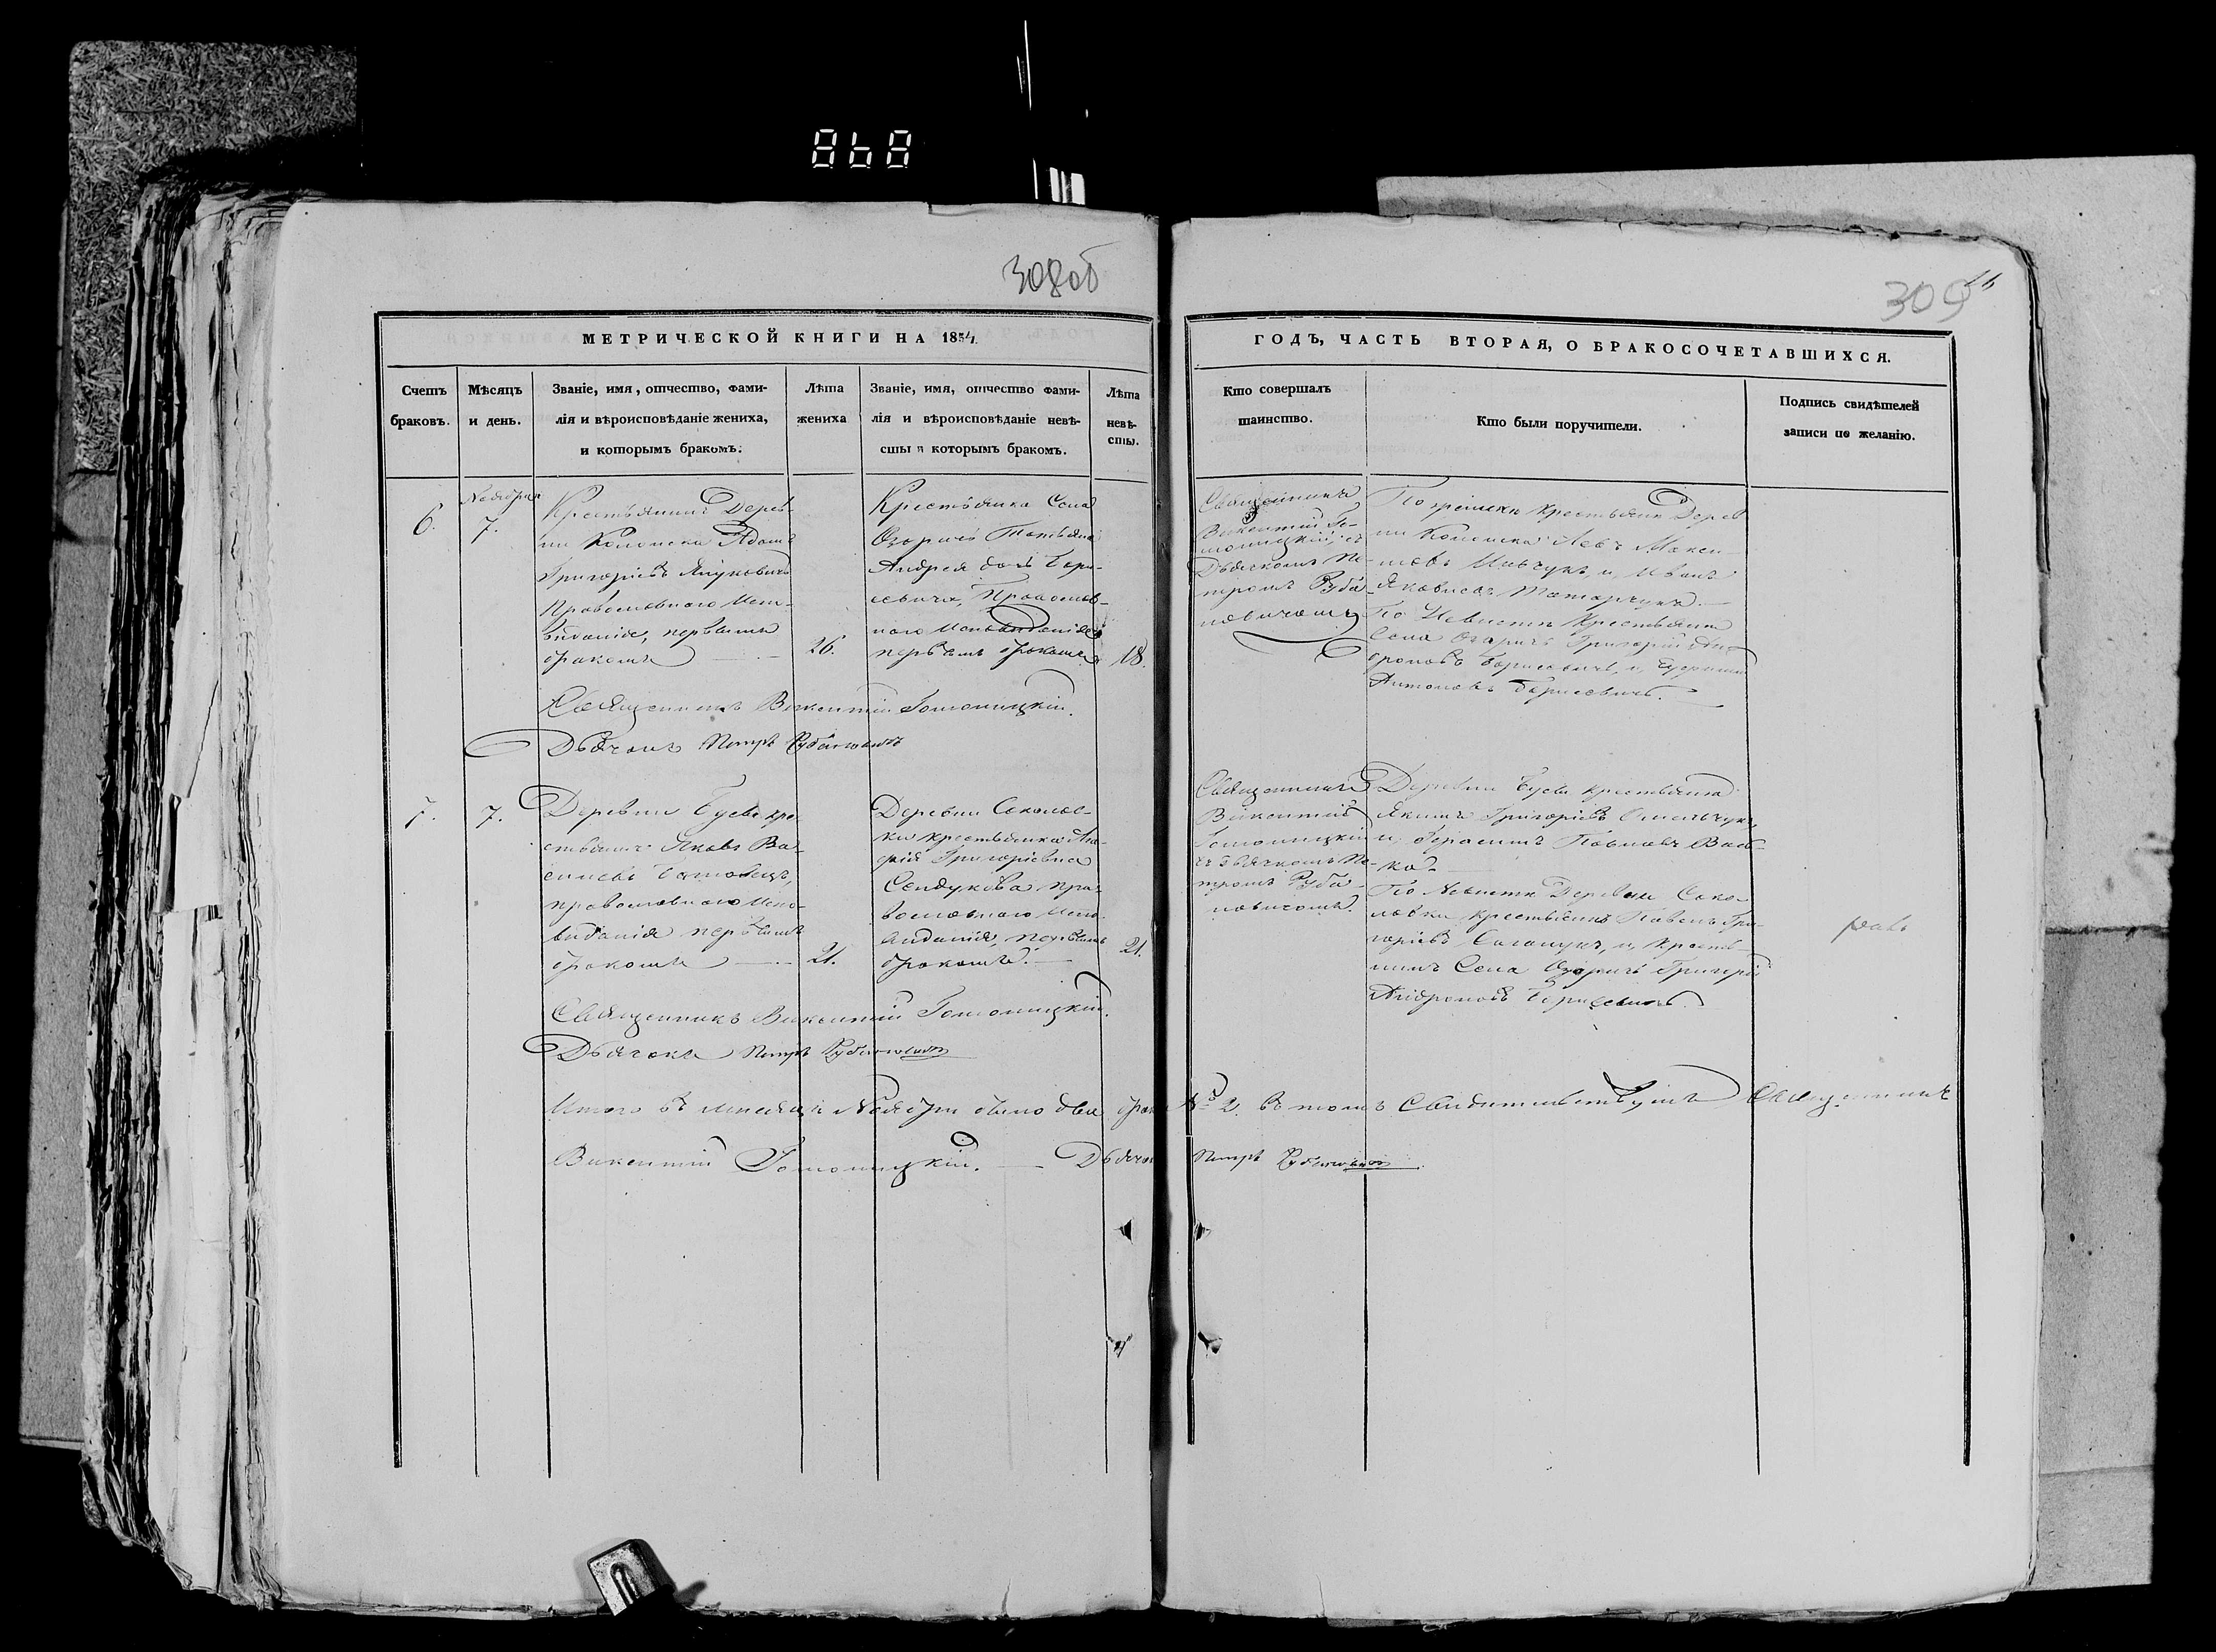 868
308об
309
МЕТРИЧЕСКОЙ КНИГИ НА 1854
ГОДЪ, ЧАСТЬ ВТОРАЯ, О БРАКОСОЧЕТАВШИХСЯ.
Счетъ
браковъ.
Мѣсяцъ
и день.
Званіе, имя, отчество, фами-
лія и вѣроисповѣданіе жениха,
и которымъ бракомъ.
Лѣта
жениха
Званіе, имя, отчество фами-
лія и вѣроисповѣданіе невѣ-
сты и которымъ бракомъ.
Лѣта
невѣ-
сты.
Кто совершалъ
таинство.
Кто были поручители.
Подпись свидѣтелей
записи по желанію.
6.
Ноября
7.
Крестьянинъ Дерев-
ни Адамъ
Григоріевъ Януковичъ
Православнаго Испо-
вѣданія, первымъ
бракомъ
26.
Крестьянка Села
Озаричъ Татьяна
Андрея дочь Бори-
севича, Православ-
наго Исповѣданія
первымъ бракомъ
18.
Священникъ
Викентій Го-
молицкій, съ
Дьячкомъ Пе-
тромъ Руба-
новичемъ
По женихѣ крестьяне Дерев
ни Левъ Макси-
мовъ и Иванъ
Яковлевъ Татарчукъ.
По Невѣстѣ Крестьяне
Села Озаричъ Григорій Ан-
дроновъ Борисевичъ, и
Антоновъ Борисевичъ.
Священникъ Викентій Гомолицкій.
Дьячокъ Петръ Рубановичъ
7.
7.
Деревни Гусева кре-
стьянинъ Яковъ Ва-
силіевъ
православнаго Испо-
вѣданія первымъ
бракомъ
21.
Деревни Соколов-
ки крестьянка Ага-
фія Григоріевна
Сендукова пра-
вославнаго Испо-
вѣданія, первымъ
бракомъ.
21.
Священникъ
Викентій
Гомолицкій
съ дьячкомъ Пе-
тромъ Руба-
новичемъ.
Деревни Гусева крестьяне
Якимъ Григоріевъ
и Герасимъ Павловъ
По Невѣстѣ Деревни Соко-
ловки крестьянинъ Павелъ Гри-
горіевъ и крестья-
нинъ Села Озаричъ Григорій
Андроновъ Борисевичъ.
Священникъ Викентій Гомолицкій.
Дьячокъ Петръ Рубановичъ
Итого въ мѣсяцѣ Ноябрѣ было два брака № 2. въ томъ Свидѣтельствуемъ Священникъ
Викентій Гомолицкій. Дьячокъ Петръ Рубановичъ